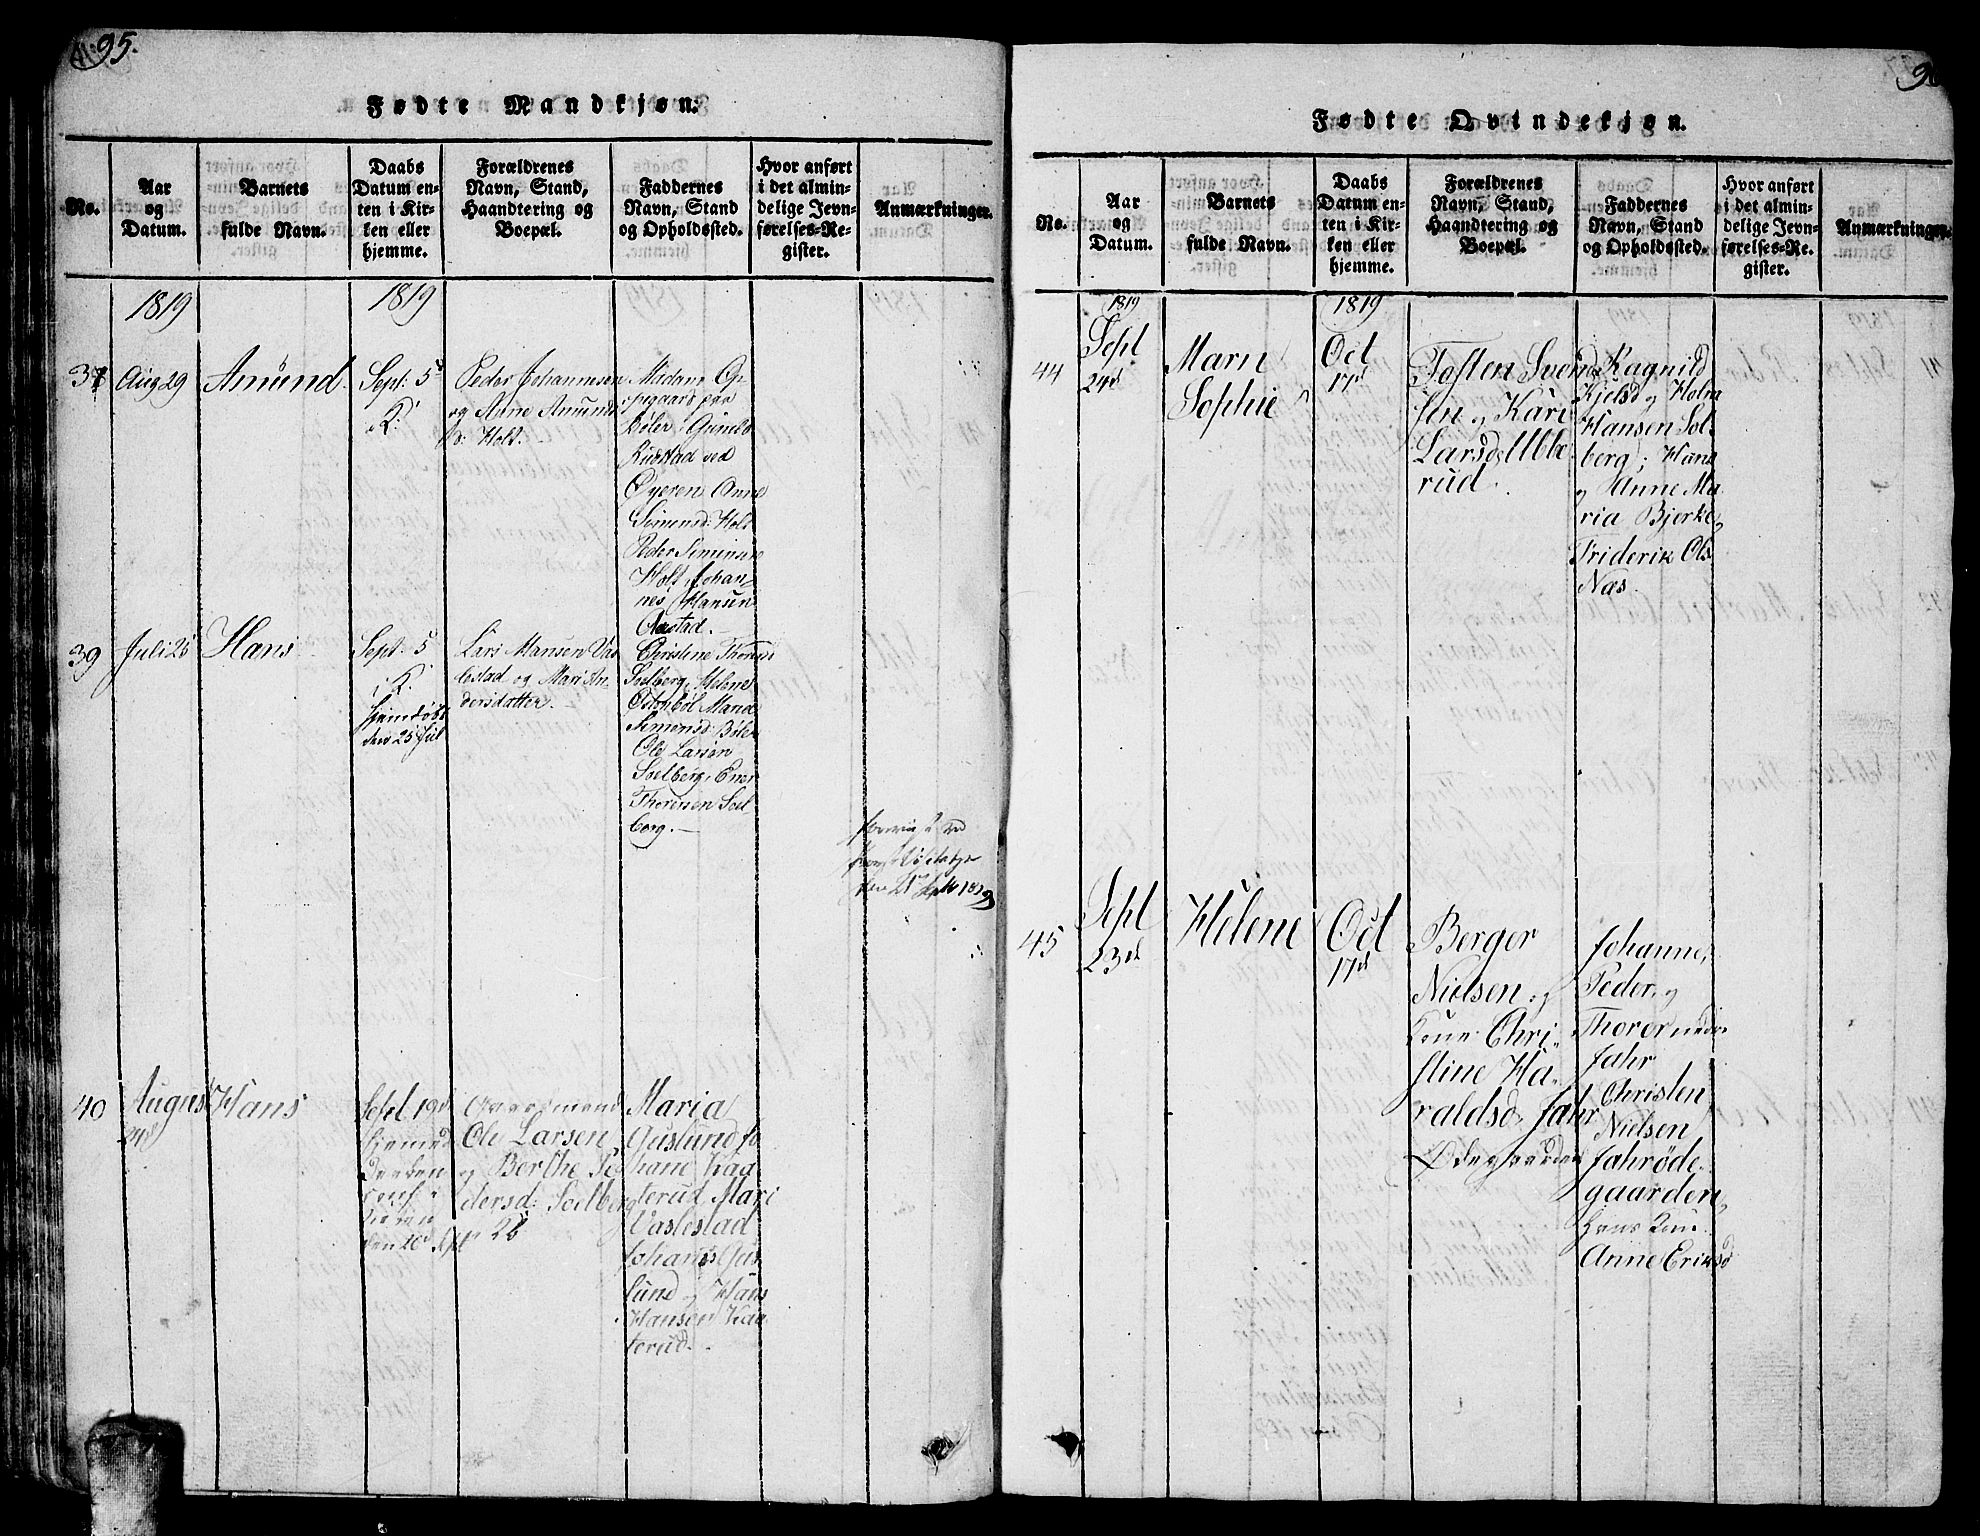 95.
Fødte Mandkjøn.
No.
Aar
og
Datum.
Barnets
fulde Navn.
Daabs
Datum en-
ten i Kir-
ken eller
hjemme.
Forældrenes
Navn, Stand,
Haandtering og
Boepæl.
Faddernes
Navn, Stand
og Opholdssted.
Hvor anført
i det almin-
delige Jevn-
førelses-Re-
gister.
Anmærkninger.
1819
1819
Aug 29
Amund.
Sept: 5
K:
Peder Johannesen
og Anne Amunds
Holt.
Madam Op-
Bøler,
Rustad ved
Øyeren Anne
Simensd: Holt
Peder Simensen
Holt, Johan-
nes Hansen
39
Juli 25
Hans
Sept: 5
i K.
hjemdøbt
den 25 Jul
Lars Hansen Vas-
lestad og Mari An-
dersdatter.
Christine Thores
Soelberg, Helene
Marie
Simensd Bøler
Ole Larsen
Soelberg, Ener
Thoresen Soel-
berg.
40
August
24d
Hans
Sept 19d
den
Sept
Gaardmand
Ole Larsen
og Berthe Pe-
dersd: Soelberg
26
Maria
Guslund Jo-
hane Kaa-
terud Mari
Vaslestad
Johans Gus-
lund og Hans
Hansen Kaa-
terud.
Fødte Qvindekjøn.
No.
Aar
og
Datum.
Barnets
fulde Navn.
Daabs
Datum en-
ten i Kir-
ken eller
hjemme.
Forældrenes
Navn, Stand,
Haandtering og
Boepæl.
Faddernes
Navn, Stand
og Opholdssted.
Hvor anført
i det almin-
delige Jevn-
førelses-Re-
gister.
Anmærkninger.
1819
1819
44
Sept
24d
Marn
Sophie
Oct
17d
Tosten Svend-
sen og Kari
Larsd Ulle-
rud.
Ragnild
Kjelsd og Holm
Hansen Sol-
berg; Hans
og Anne Ma-
ria Bjerke,
Friderik Ols
Næs.
45
Sept
23d
Helene
Oct
17d
Berger
Nielsen og
Kone Chri-
stine Ha-
raldsd. Jahr
Ødegaarden
Johanne,
Peder, og
Thorer nedre
Jahr
Christen
Nielsen
Jahrøde-
gaarden,
hans Kone
Anne Eriksd